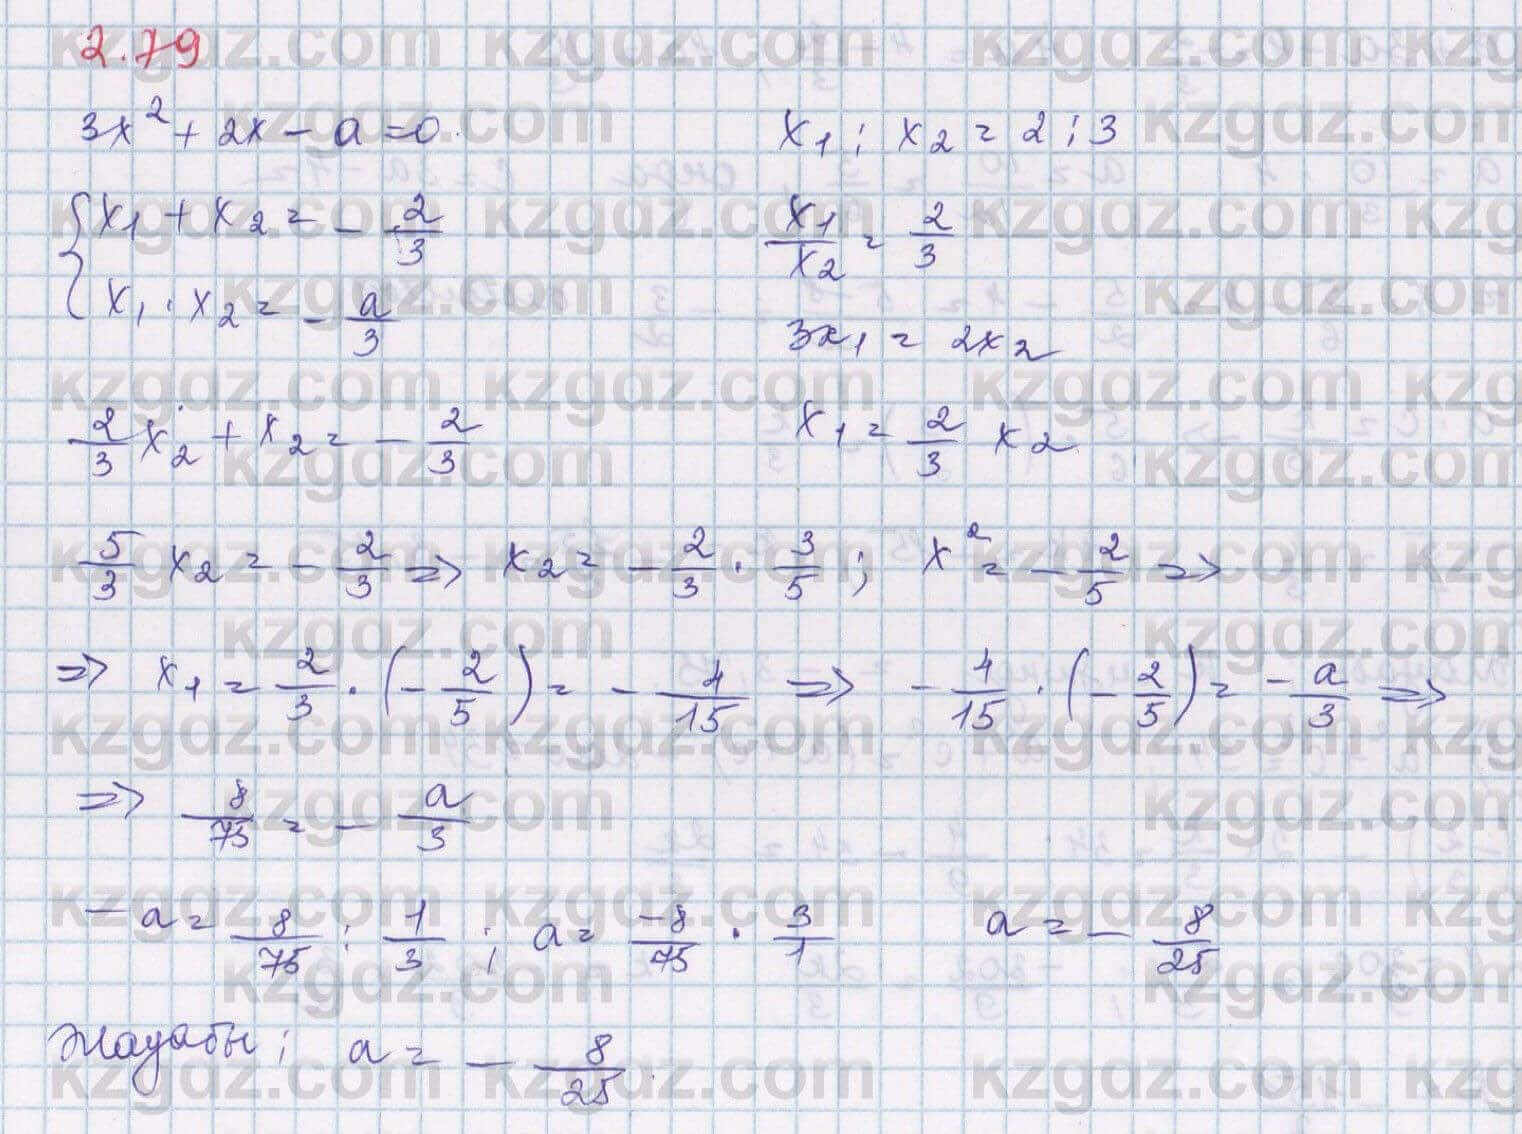 2.79
3x² + 2x - a = 0.
x₁ : x₂ = 2 : 3
{x₁ + x₂ = - 2/3
x₁ · x₂ = - a/3
x₁/x₂ = 2/3
3x₁ = 2x₂
2/3 x₂ + x₂ = - 2/3
x₁ = 2/3 x₂
5/3 x₂ = - 2/3 => x₂ = - 2/3 · 3/5 ; x² = - 2/5 =>
=> x₁ = 2/3 · (- 2/5) = - 4/15 => - 4/15 · (- 2/5) = - a/3 =>
=> 8/75 = - a/3
- a = 8/75 : 1/3 ; a = -8/75 · 3/1 a = - 8/25
Жауабы: a = - 8/25.
kzgdz.com